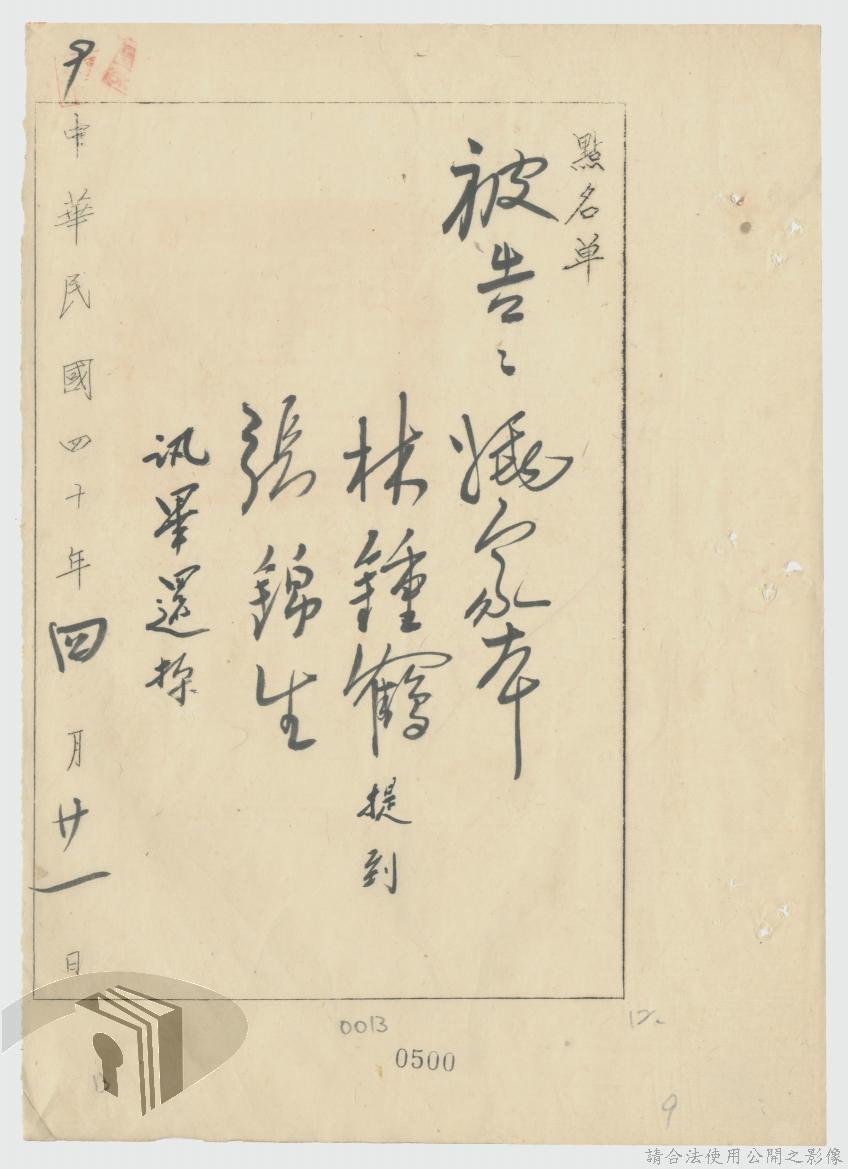 點名单
被告：家本
林鍾鶴 提到
張錦生
訊畢還
中華民國四十年四月廿一日
0013
12.
0500
9
請合法使用公開之影像